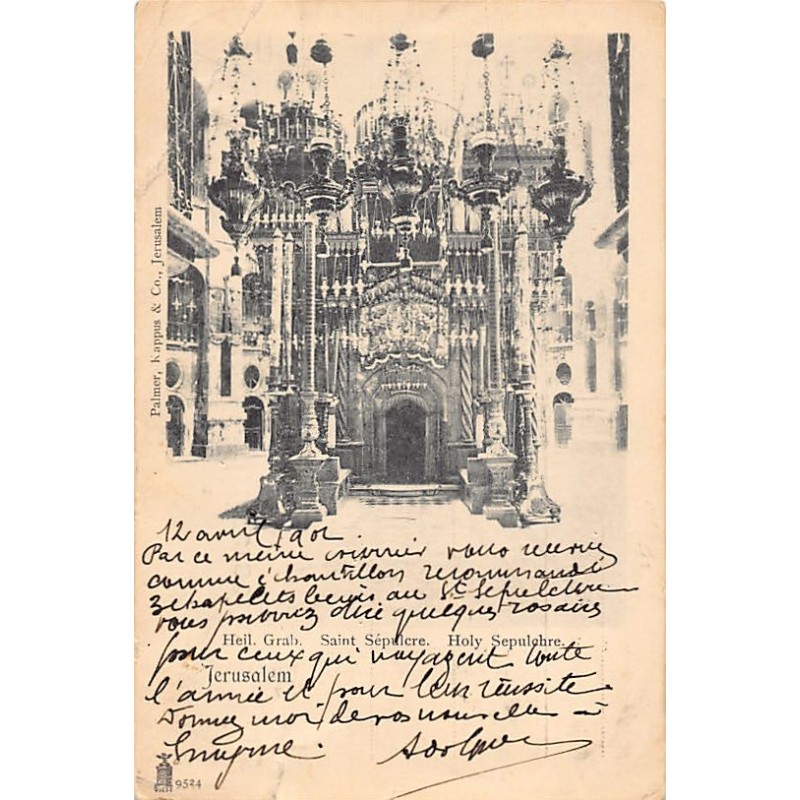 Palmer, Kappus & Co., Jerusalem
12 avril 1901
Par ce même courrier vous recevrez
comme échantillon recommandé
3 chapelets bénis au St Sépulchre
vous pourrez dire quelques rosaires
Heil. Grab. Saint Sépulcre. Holy Sepulchre.
pour ceux qui voyagent toute
Jerusalem
l'année et pour leur réussite
Donnez moi de vos nouvelles à
Smyrne. Adolphe
9524